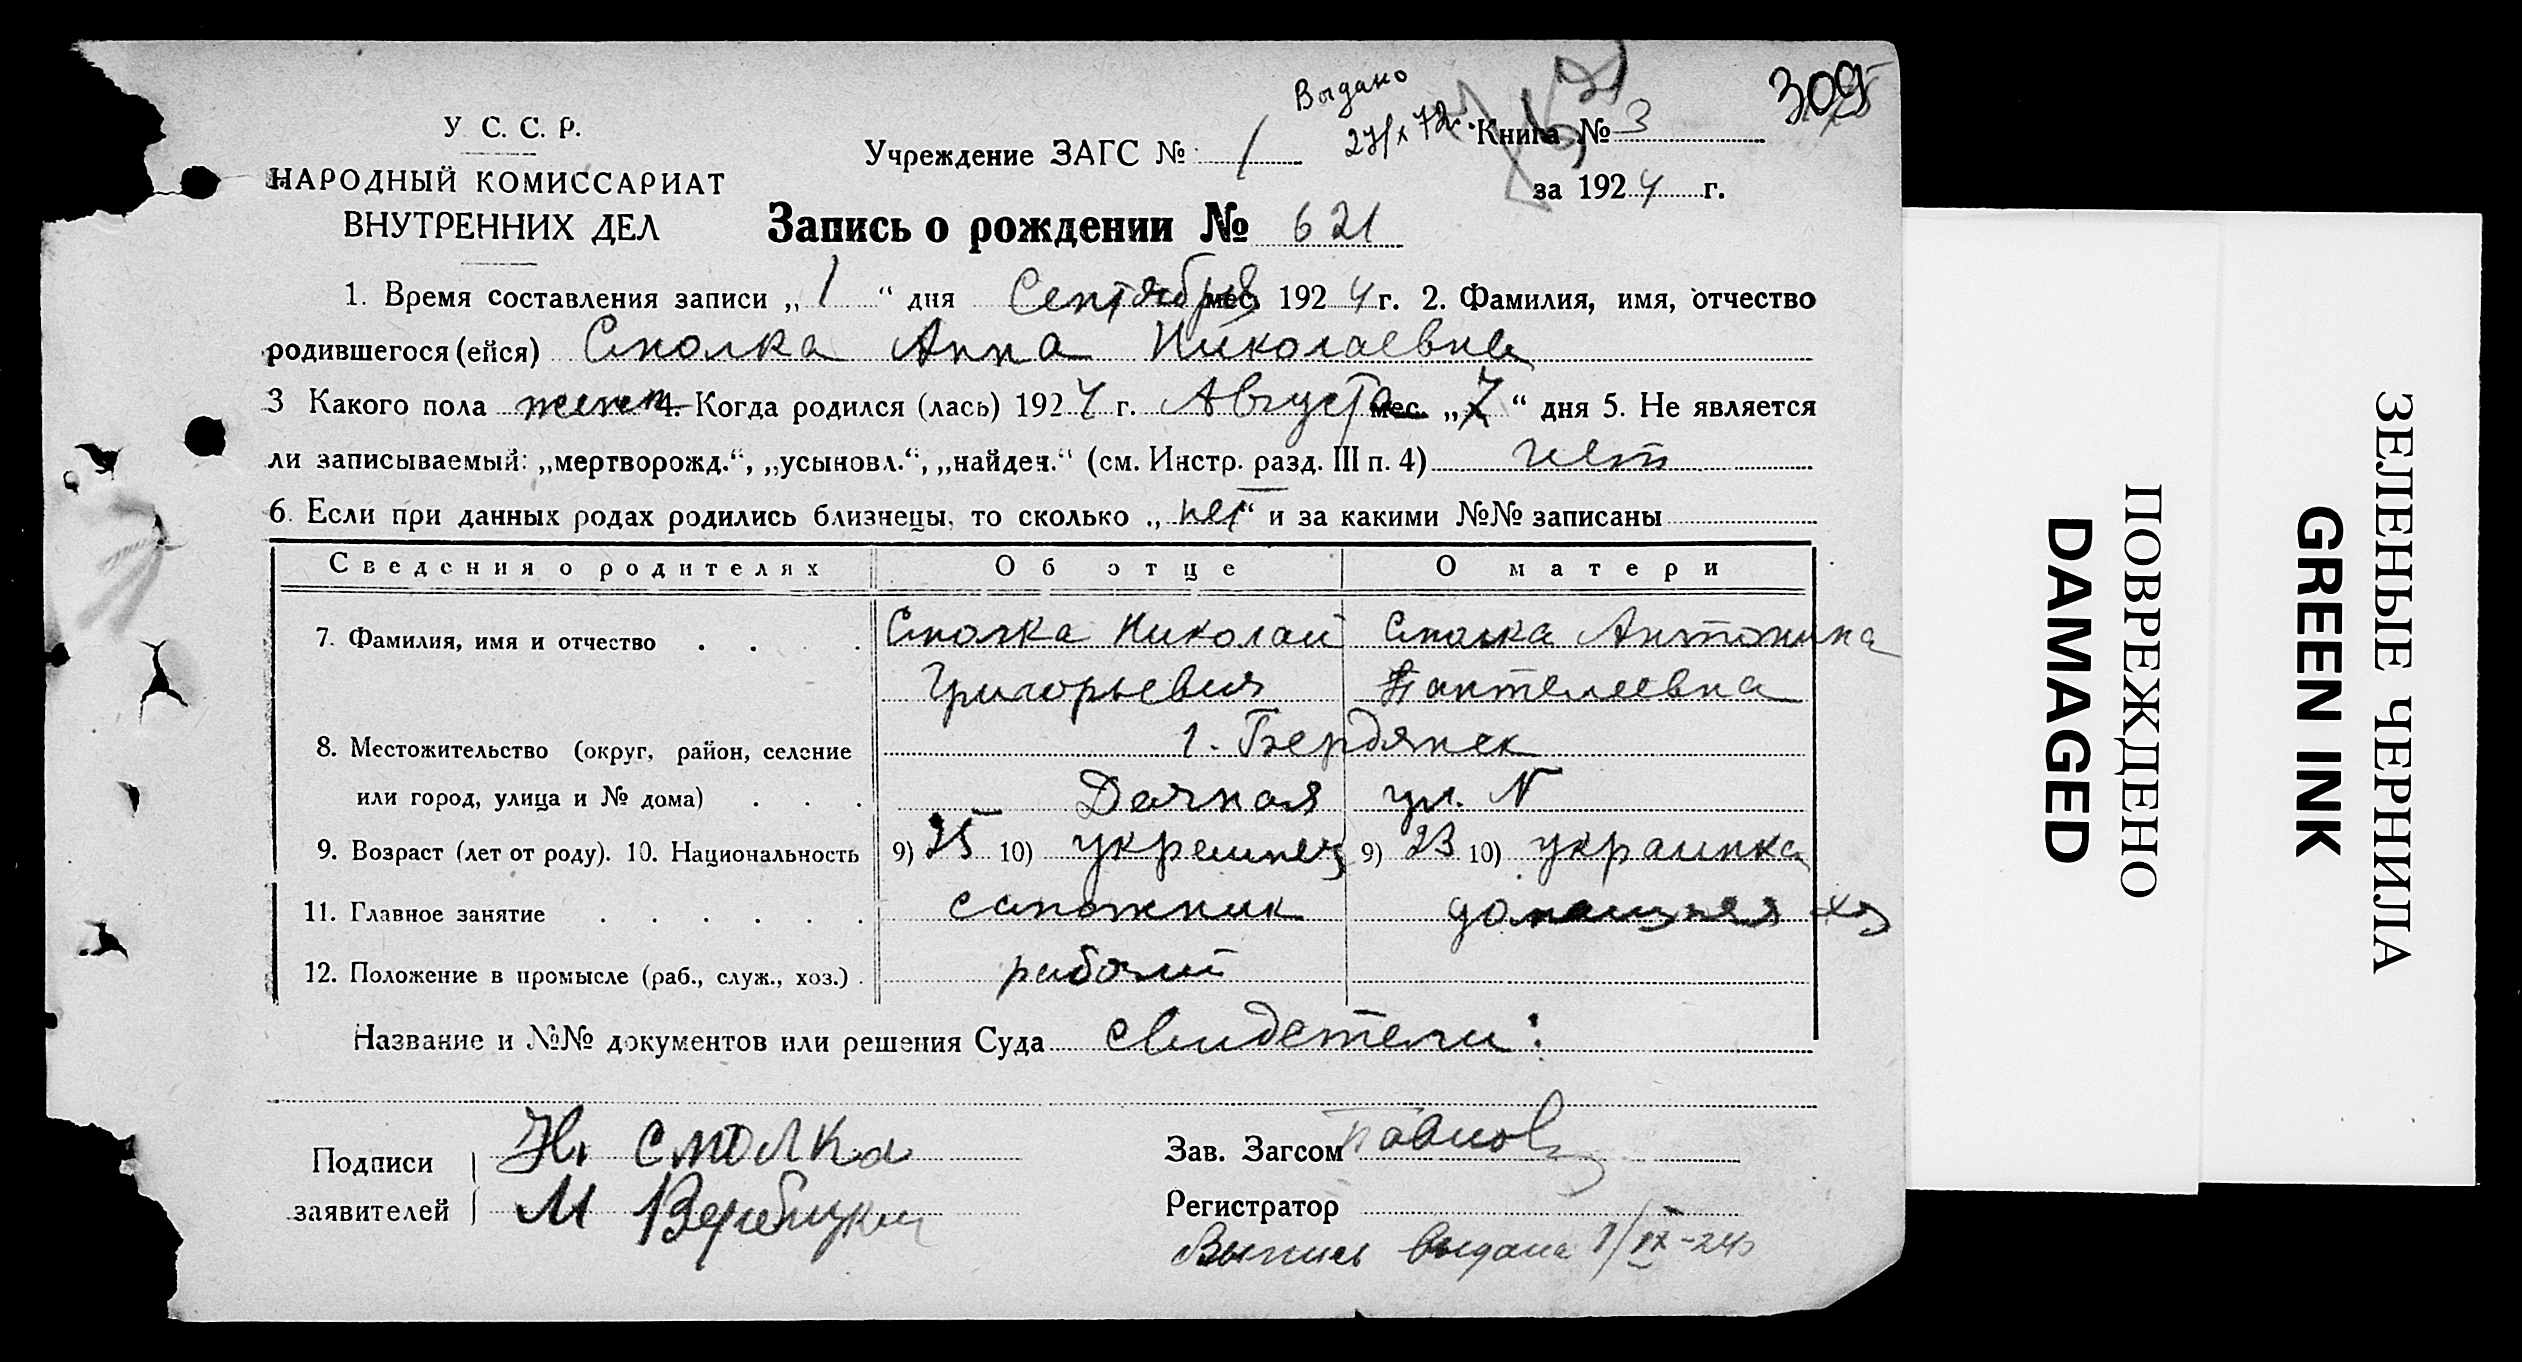 309
Выдано
У С. С. Р.
Учреждение ЗАГС № 1
Книга № 3
НАРОДНЫЙ КОМИССАРИАТ
за 1924 г.
ВНУТРЕННИХ ДЕЛ
Запись о рождении № 621
1. Время составления записи „ 1 “ дня Сентября мес. 1924 г. 2. Фамилия, имя, отчество
родившегося (ейся) Смолка Анна Николаевна
3 Какого пола женск 4. Когда родился (лась) 1924 г. Августа мес. „7“ дня 5. Не является
ли записываемый: „мертворожд.“, „усыновл.“, „найден.“ (см. Инстр. разд. III п. 4) нет
6. Если при данных родах родились близнецы, то сколько „нет“ и за какими №№ записаны
Сведения о родителях Об отце О матери
7. Фамилия, имя и отчество Смолка Николай Смолка Антонина
Григорьевич Пантелеевна
8. Местожительство (округ, район, селение г. Бердянск
или город, улица и № дома) Дачная ул. N
9. Возраст (лет от роду). 10. Национальность 9) 25 10) украинец 9) 23 10) украинка
11. Главное занятие сапожник домашняя хоз
12. Положение в промысле (раб., служ., хоз.) рабочий
Название и №№ документов или решения Суда свидетели:
Подписи Н. Смолка
заявителей М Вербицкий
Зав. Загсом Павлов
Регистратор
Выпись выдана 1/IX-24
ПОВРЕЖДЕНО
DAMAGED
ЗЕЛЕНЫЕ ЧЕРНИЛА
GREEN INK